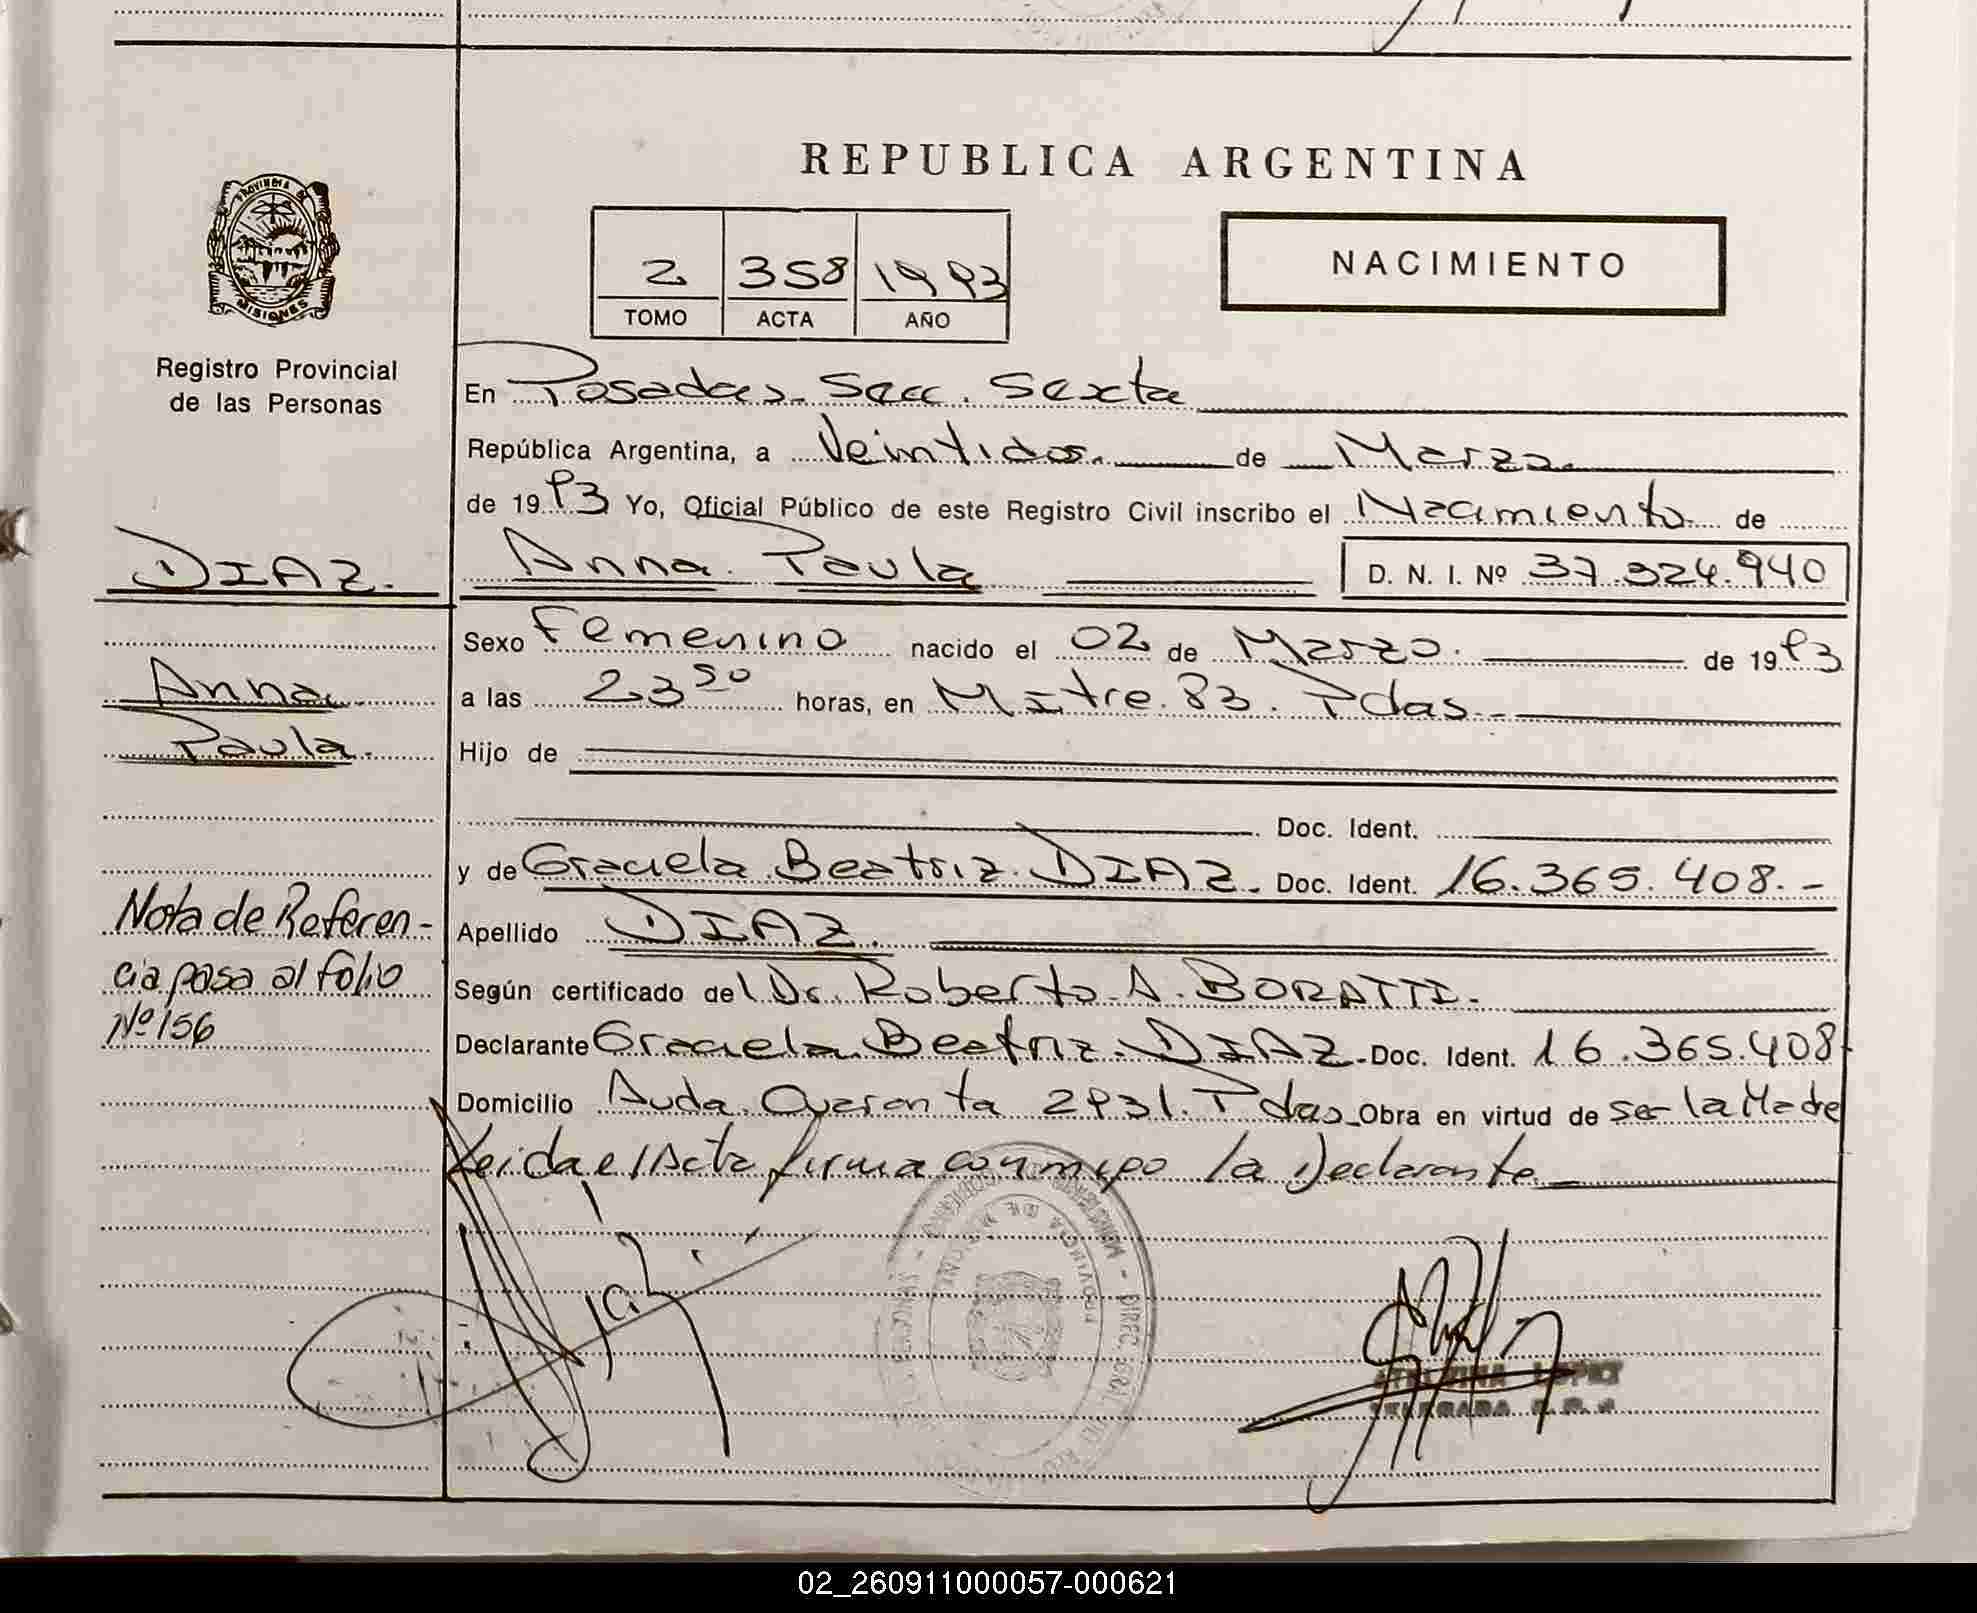 REPUBLICA ARGENTINA
PROVINCIA DE
MISIONES
Registro Provincial
de las Personas
2 358 1993
TOMO ACTA AÑO
NACIMIENTO
En Posadas. Secc. Sexta
República Argentina, a Veintidos. de Marzo.
de 1993 Yo, Oficial Público de este Registro Civil inscribo el Nacimiento de
DIAZ. Anna Paula D. N. I. Nº 37.324.940
Sexo Femenino nacido el 02 de Marzo. de 1993
Anna
a las 23 50 horas, en Mitre 83. Pdas.
Paula.
Hijo de
Doc. Ident.
y de Graciela Beatriz DIAZ. Doc. Ident. 16.365.408.-
Nota de Referen-
cia pasa al folio
Nº 156
Apellido DIAZ.
Según certificado del Dr. Roberto A. BORATTI.
Declarante Graciela Beatriz DIAZ. Doc. Ident. 16.365.408
Domicilio Avda. Quaranta 2931. Pdas Obra en virtud de ser la Madre
Leida el Acta firma conmigo la Declarante
PROVINCIA DE MISIONES
LOPEZ
02_260911000057-000621